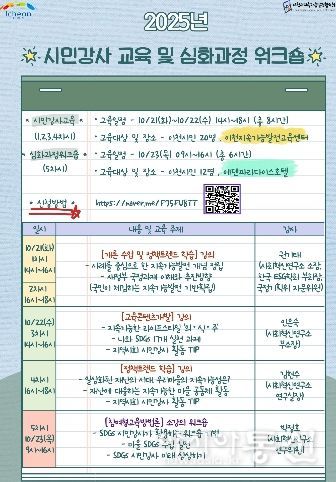 icheon
2025년
시민강사 교육 및 심화과정 워크숍
시민강사교육
(1,2,3,4차시)
• 교육일정 - 10/21(화)~10/22(수) 14시~18시 (총 8시간)
• 교육대상 및 장소 - 이천시민 20명, 이천지속가능발전교육센터
심화과정워크숍
(5차시)
• 교육일정 - 10/23(목) 09시~16시 (총 6시간)
• 교육대상 및 장소 - 이천시민 12명, 에덴파라다이스호텔
신청방법
일시
내용 및 교육 주제
강사
10/21(화)
1차시
14시~16시
2차시
16시~18시
[개론 수업 및 정책트렌드 학습] 강의
- 사례를 중심으로 한 지속가능발전 개념 정립
- 새정부 국정과제 이해와 추진방향
(국민이 체감하는 지속가능발전 기반확립)
(사회혁신연구소 소장,
10/22(수)
3차시
14시~16시
[교육콘텐츠개발] 강의
- 지속가능한 라이프스타일 '의·식·주'
- 나와 SDGs 17개 실천 과제
- 지역사회 시민강사 활동 TIP
인은숙
(사회혁신연구소
부소장)
4차시
16시~18시
[정책트렌드 학습] 강의
- 일상화된 재난의 시대 우리마을의 지속가능성은?
- 재난에 대응하는 지속가능한 마을 공동체 활동
- 지역사회 시민강사 활동 TIP
(사회혁신연구소
연구실장)
5차시
10/23(목)
9시~16시
[참여형교육방법론] 소강의 워크숍
- 마을 SDGs 수립 실천
- SDGs 시민강사 미래 상상하기
(사회혁신연구소
연구원)